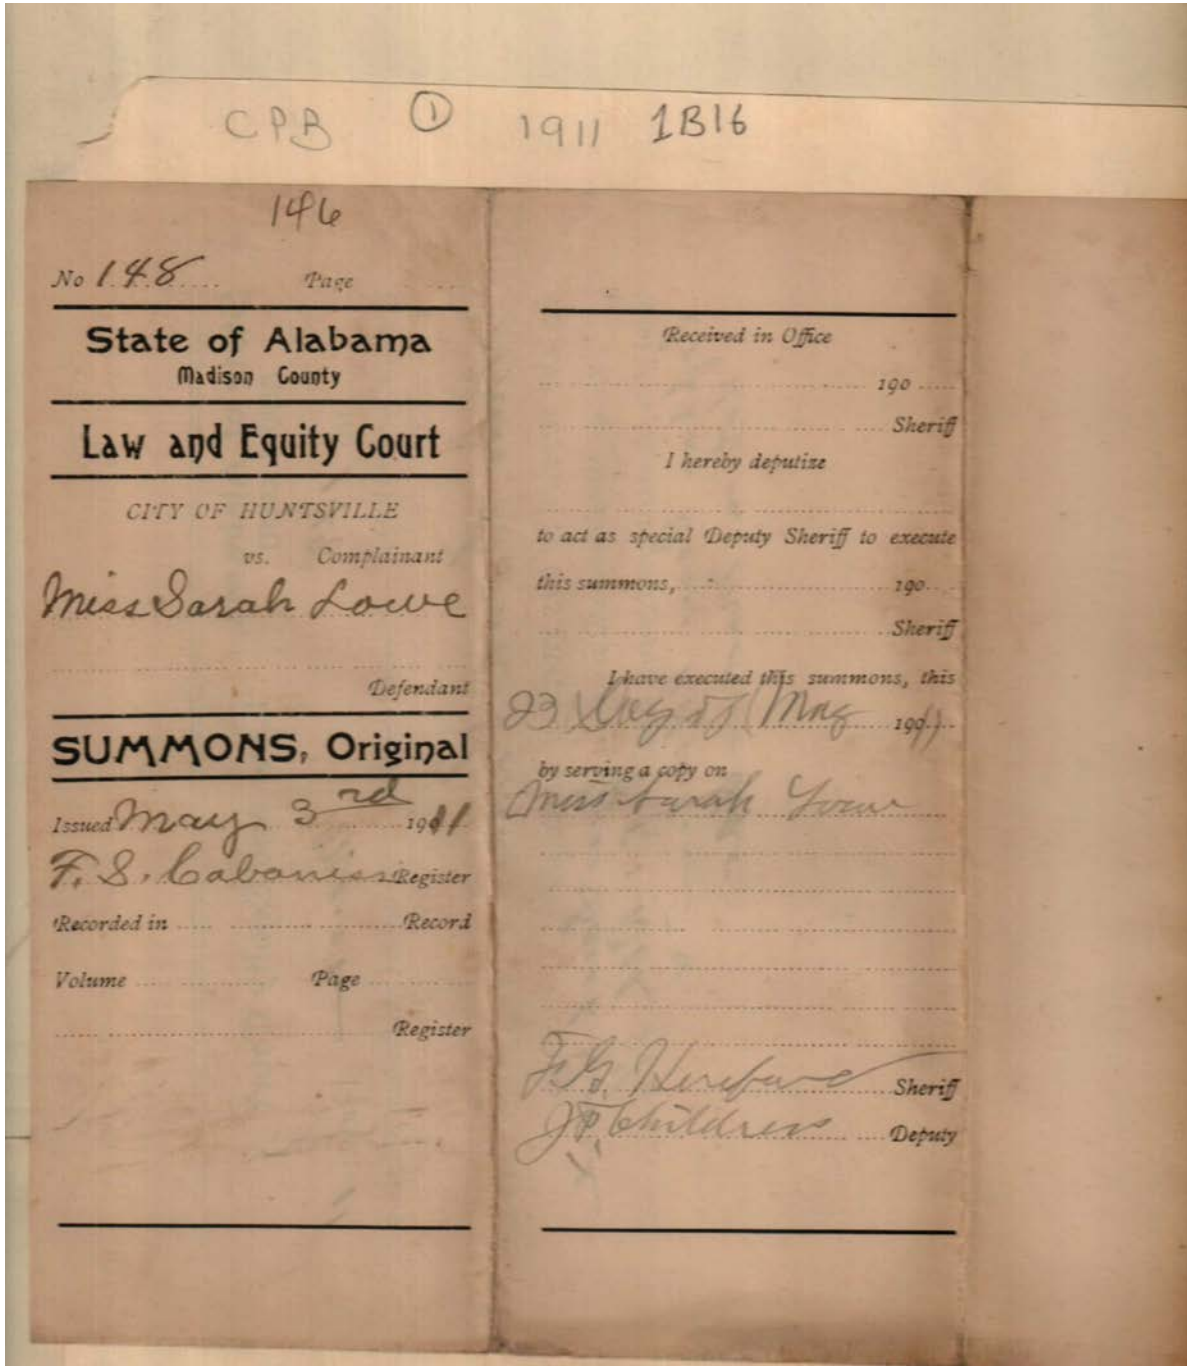 CPB 1 1911 1B16
146
No 148 Page
State of Alabama
Madison County
Law and Equity Court
CITY OF HUNTSVILLE
vs. Complainant
Miss Sarah Lowe
Defendant
SUMMONS, Original
Issued May 3rd 1911
F. S. Cabaniss Register
Recorded in Record
Volume Page
Register
Received in Office
190
Sheriff
I hereby deputize
to act as special Deputy Sheriff to execute
this summons, 190
Sheriff
I have executed this summons, this
23 day of May 1911
by serving a copy on
Miss Sarah Lowe
Sheriff
J P Childress Deputy